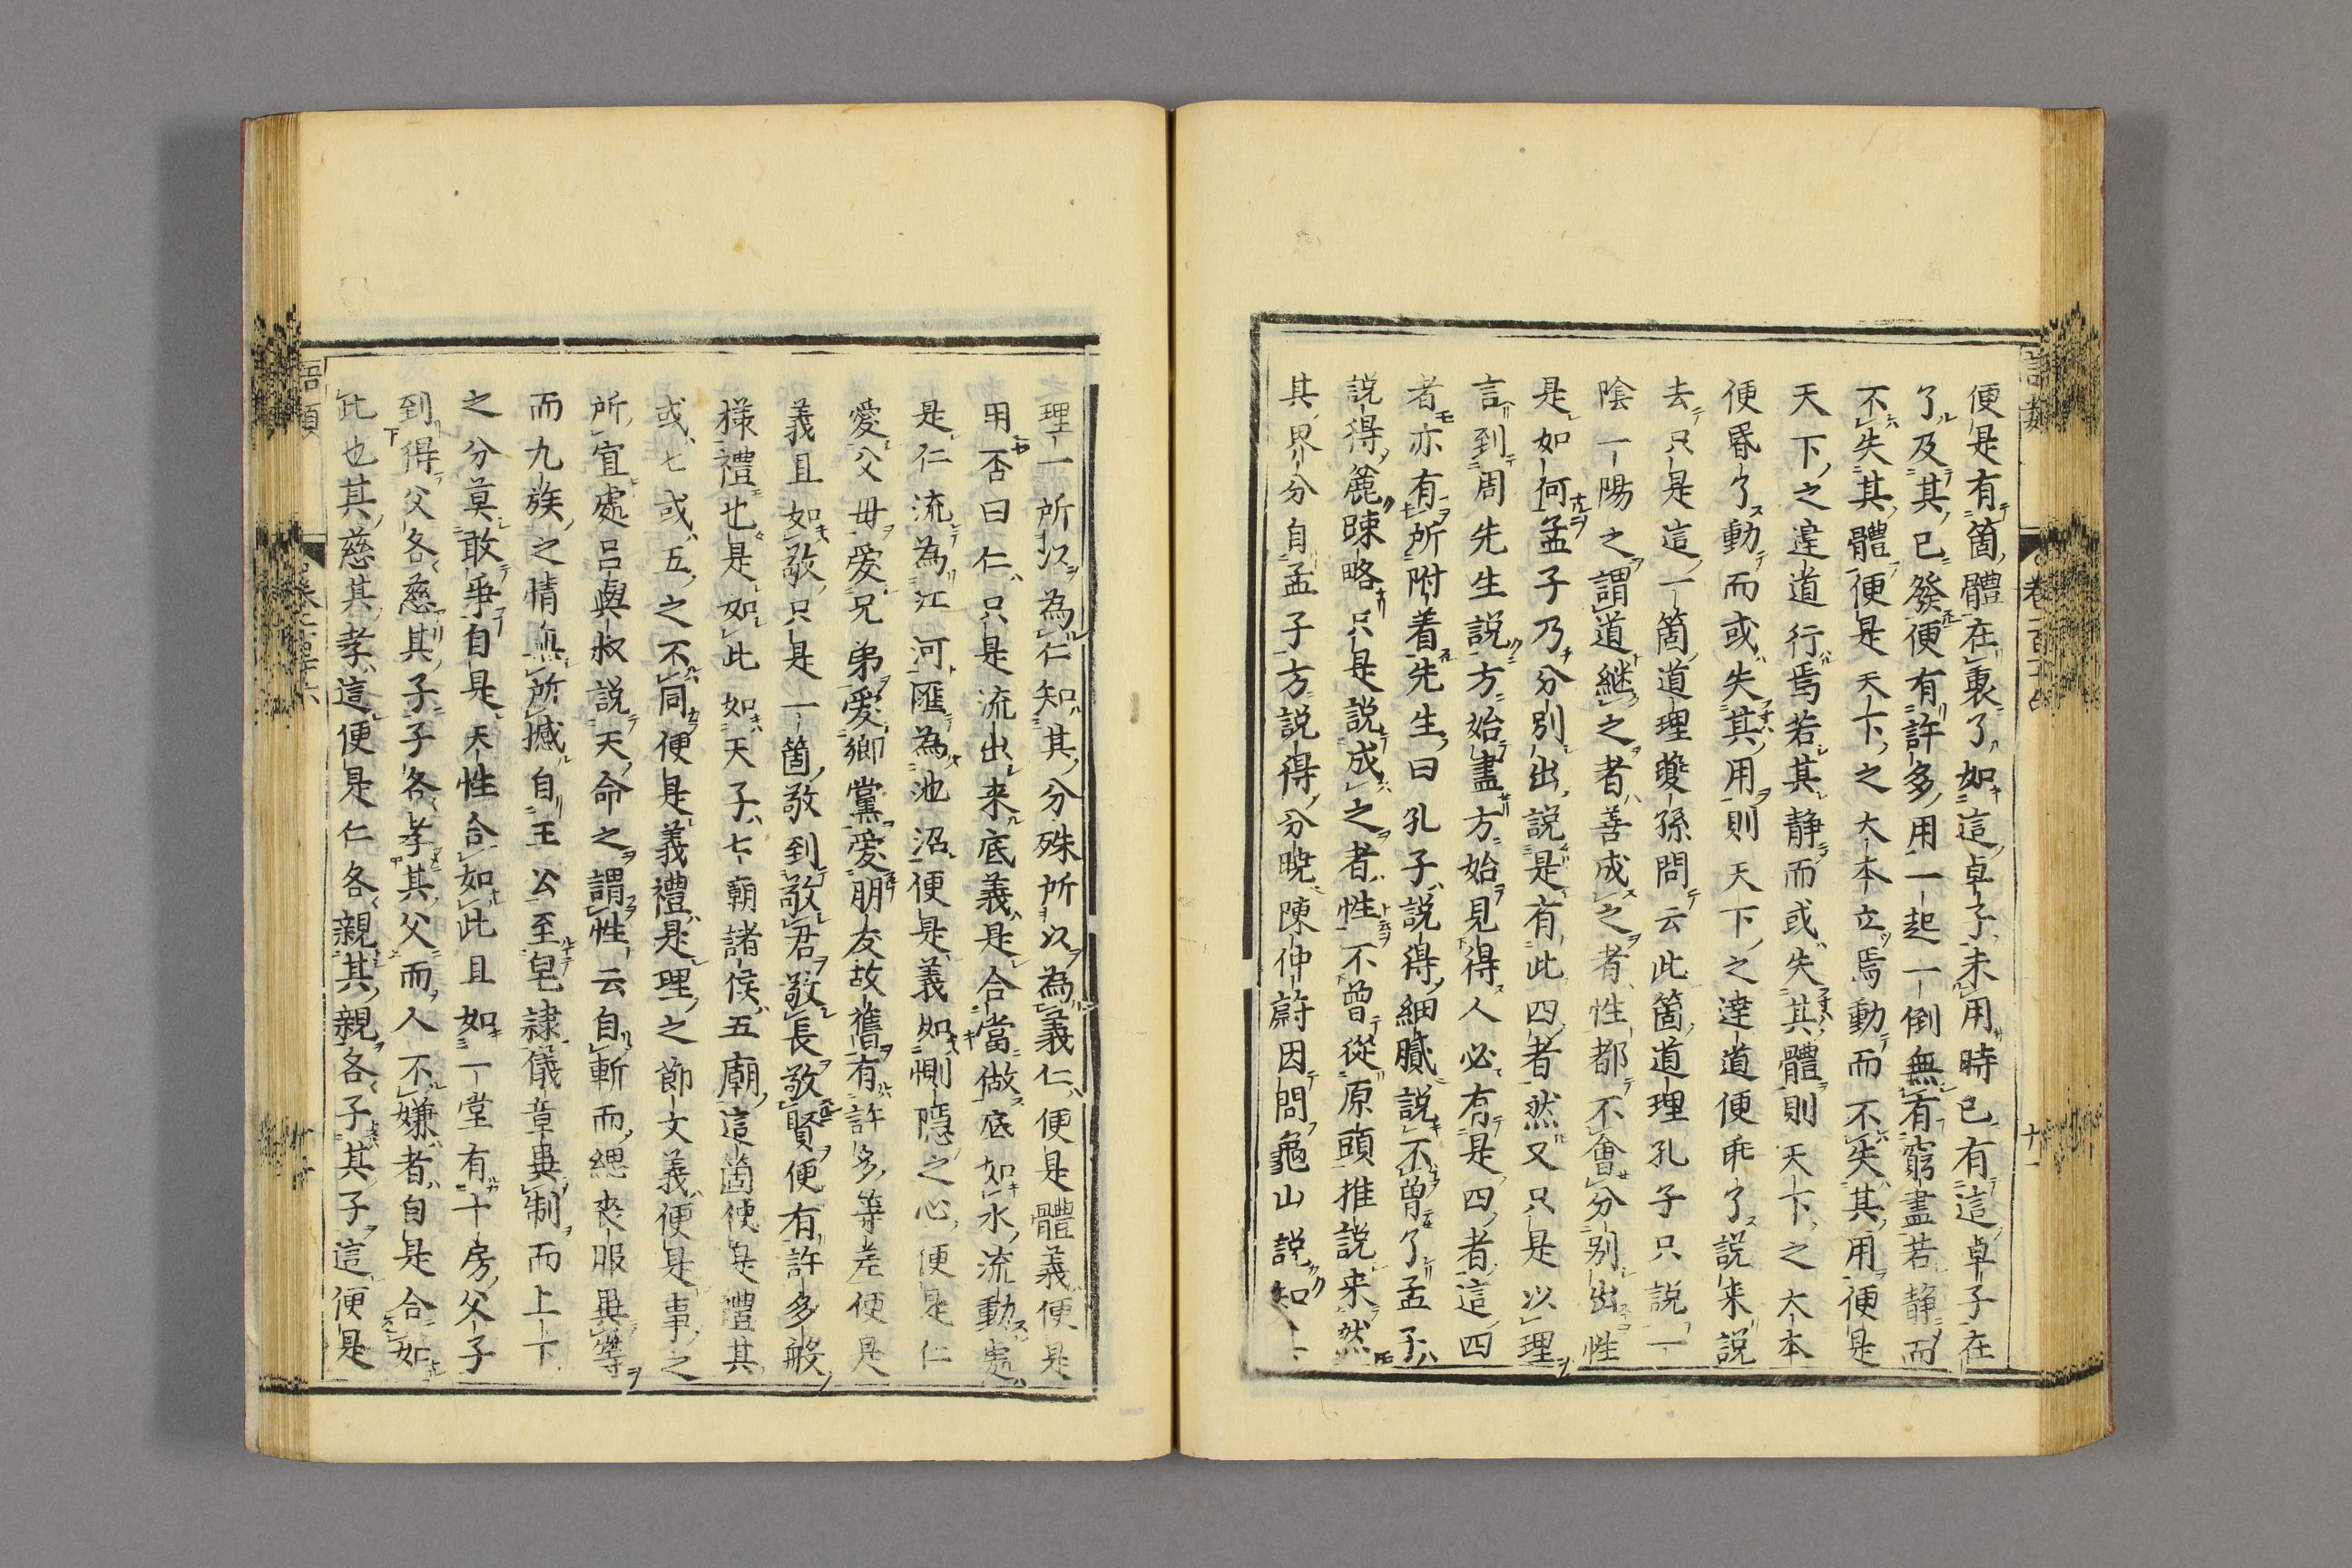 便是有箇體在裏了如這卓子未用時已有這卓子在
了及其已發便有許多用一起一倒無有窮盡若静而
不失其體便是天下之大本立焉動而不失其用便是
天下之達道行焉若其静而或失其體則天下之大本
便昬了動而或失其用則天下之達道便乖了說来說
去只是這一箇道理夔孫問云此箇道理孔子只說一
陰一陽之謂道継之者善成之者性都不會分别出性
是如何孟子乃分别出說是有此四者然又只是以理
言到周先生說方始盡方始見得人必有是四者這四
者亦有所附着先生曰孔子說得細膩說不曾了孟子
說得麄踈略只是說成之者性不曽從原頭推說来然
其界分自孟子方說得分暁陳仲蔚因問龜山說知
理一所以為仁知其分殊所以為義仁便是體義便是
用否曰仁只是流出来底義是合當做底如水流動處
是仁流為江河匯為池沼便是義如惻隠之心便是仁
愛父毋愛兄弟愛郷黨愛朋友故舊有許多等差便是
義且如敬只是一箇敬到敬君敬長敬賢便有許多般
樣禮也是如此如天子七朝諸侯五廟這箇便是禮其
或七或五之不同便是義禮是理之節文義便是事之
所宜處呂與叔說天命之謂性云自斬而緦喪服異等
而九族之情無所撼自王公至皂隷儀章異制而上下
之分莫敢爭自是天性合如此且如一堂有十房父子
到得父各慈其子子各孝其父而人不嫌者自是合如
此也其慈其孝這便是仁各親其親各子其子這便是